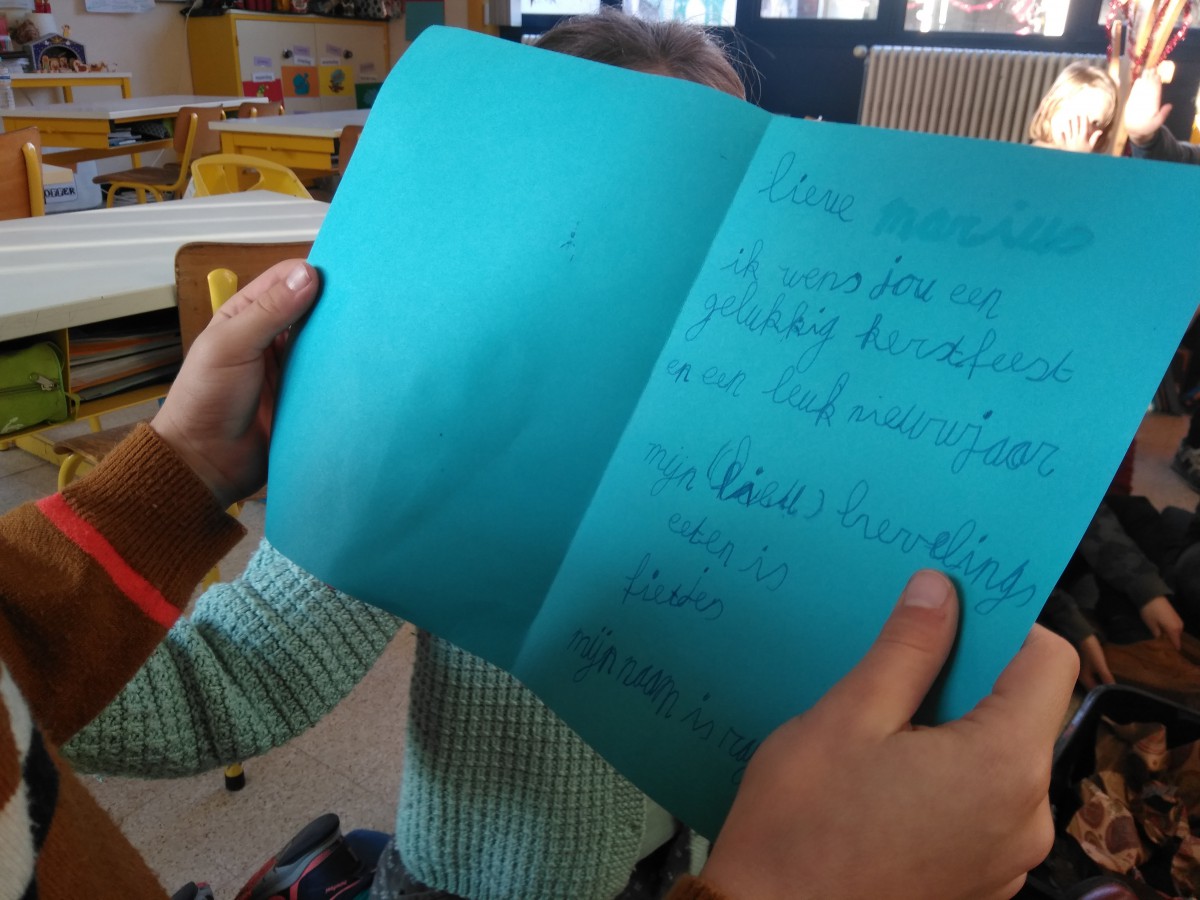 lieve marius
ik wens jou een
gelukkig kerstfeest
en een leuk nieuwjaar
mijn ( ) lievelings
eeten is
mijn naam is